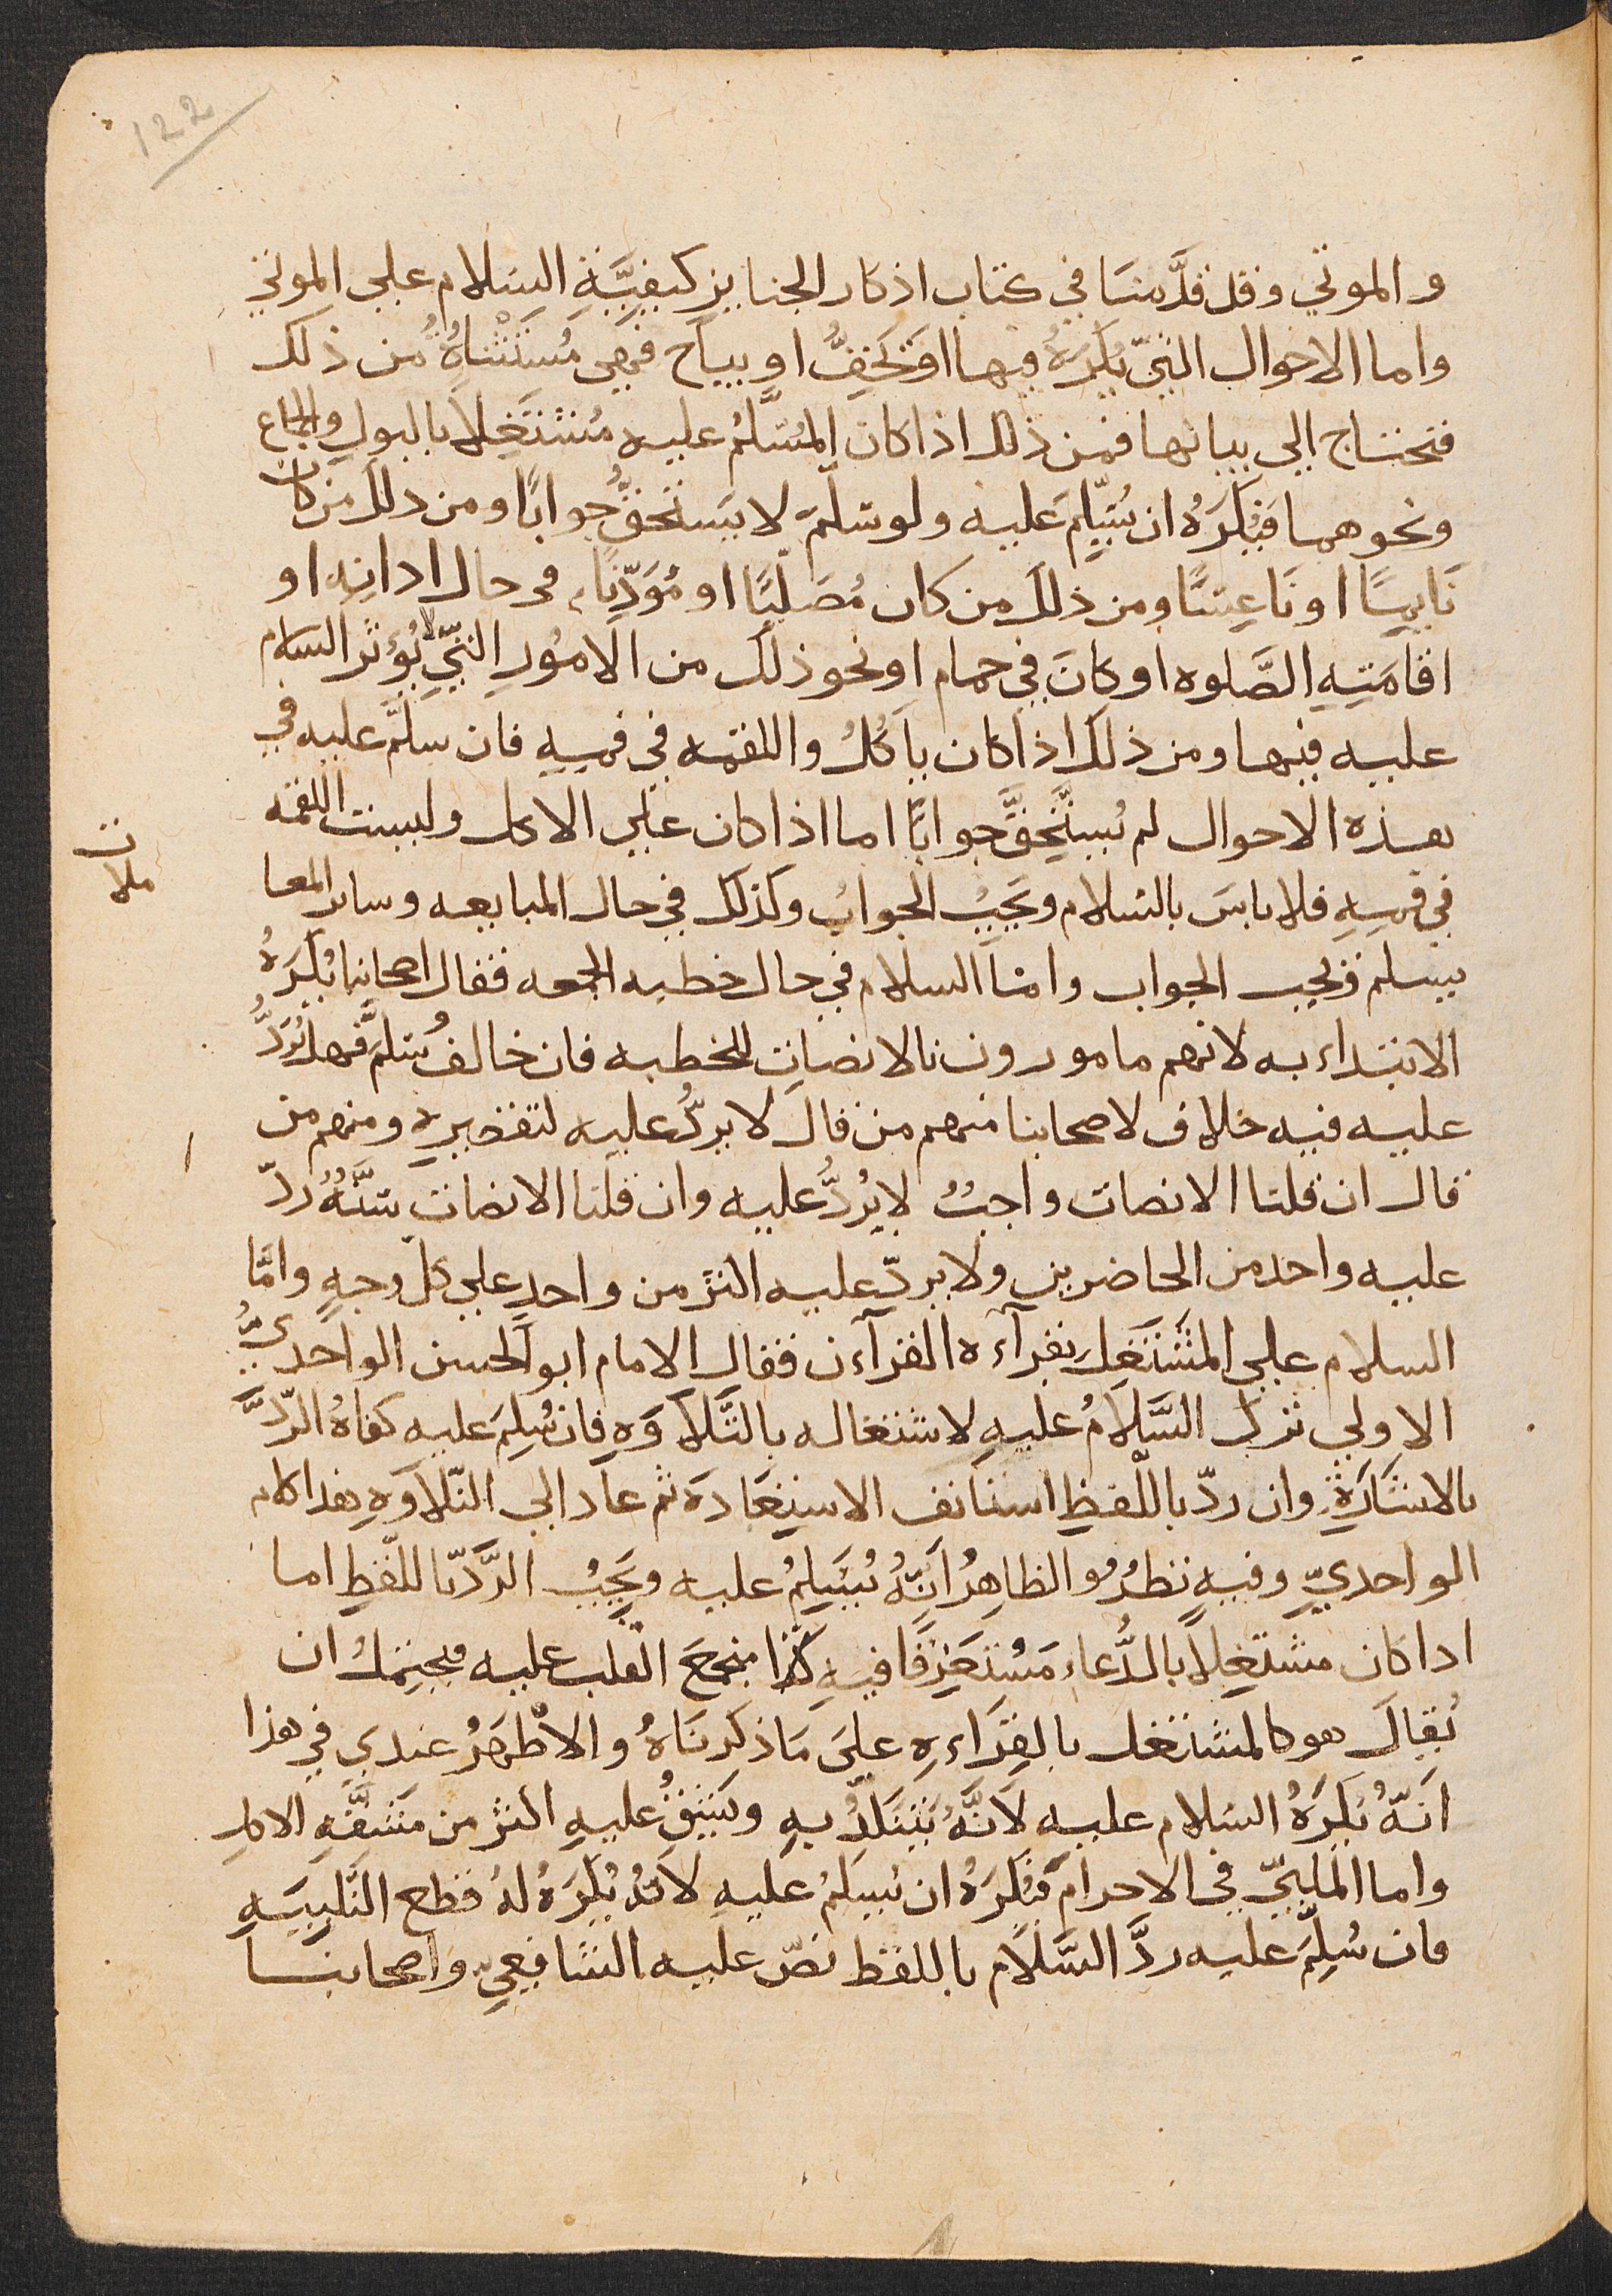 122
والموتي وقد قدَّمنَا في كتاب اذكار الجنايز كيفيَّةِ السَلام علي الموتي
واما الاحوال التيّ يُكرَهُ فيها اوَ يَخِفُّ او يباح فهي مُستَثْناةُ من ذلك
فتحتاج الي بيانها فمن ذلك اذا كان المُسَلَّمُ عليه مُشتَغِلًا بالبول والجماع
ونحوهما فَيُكرَهُ ان يُسَلّمَ عليه ولو سَلّمَ لا يَستَحقُّ جوابًا ومن ذلك من كان
نَايمًا او نَاعِسًا ومن ذلكَ من كان مُصَليًا او مُؤَذِّنًا في حال اذانِه او
اقامَتِهِ الصَّلوه او كانَ في حمام او نحو ذلك من الامُورِ التيّ لا يُؤثر السلام
عليه فيها ومن ذلك اذا كان يأكُلُ واللقمه في فمِهِ فان سلَّم عليه في
هذه الاحوال لم يَستَحِقَّ جوابًا اما اذا كان علي الاكل وليست اللقمه
في فمِهِ فلا باسَ بالسَلام ويَجبُ الجوابُ وكذلك في حال المبايعه وساير المعا
ملات
يسلم ويجب الجواب وامّا السلام في حال خطبه الجمعه فقال اصحابنا يُكرَهُ
الابتداء به لانهم مامورون بالانصاتِ للخطبه فان خالفُ سَلَّمَ فهل يُرَدُّ
عليه فيه خلاف لاصحابنا منهم من قال لا يردُّ عليه لتقصيره ومنهم من
قال ان قلنا الانصات واجبُ لا يُرُدُّ عليه وان قلنا الانصات سَنَّهُ ردّ
عليه واحد من الحاضرين ولا يردّ عليه اكثر من واحدٍ علي كلّ وجهٍ وامَّا
السلام علي المُشتَغِل بقرآءه القرآءن فقال الامام ابو الحسن الواحديُّ
الاولي ترك السَّلامُ عليهِ لاشتغاله بالتَّلاَوَهِ فان سُلِمَ عليه كفاهُ الرّدَّ
بالاشَارَةِ وان ردّ باللّفظِ استانف الاستِعَادَة ثم عاد الي التّلاَوَهِ هذا كلام
الواحديِّ وفيهِ نظرُ والظاهِرُ اَنَّهُ يُسَلِمُ عليه ويَجَبُ الرَّدّ باللّفظِ اما
اذا كان مشتغِلًا بالدُّعاء مَسُتَغرِقًا فيهِ كذا مجمعَ القلب عليه فيحتِمكُ ان
يُقالَ هو كالمشتغل بالقِرَاءهِ علىَ مَا ذكرنَاهُ والاظهَرُ عندي في هذا
اَنّهُ يُكرَهُ السَلام عليه لاَنَّهُ يَتَنَكّدُ بهِ ويَشُقُّ عليهِ اكثر من مَشقَّهِ الاكل
واما الملبيّ في الاحرام فَيُكرَهُ ان يُسلمُ عليهِ لاَنهُ يُكرَهُ لهُ قطع التَّلبيَهِ
فان سُلِمّ عليه ردَّ السَّلام باللفظ نصّ عليه الشافِعيِّ واصحابنا